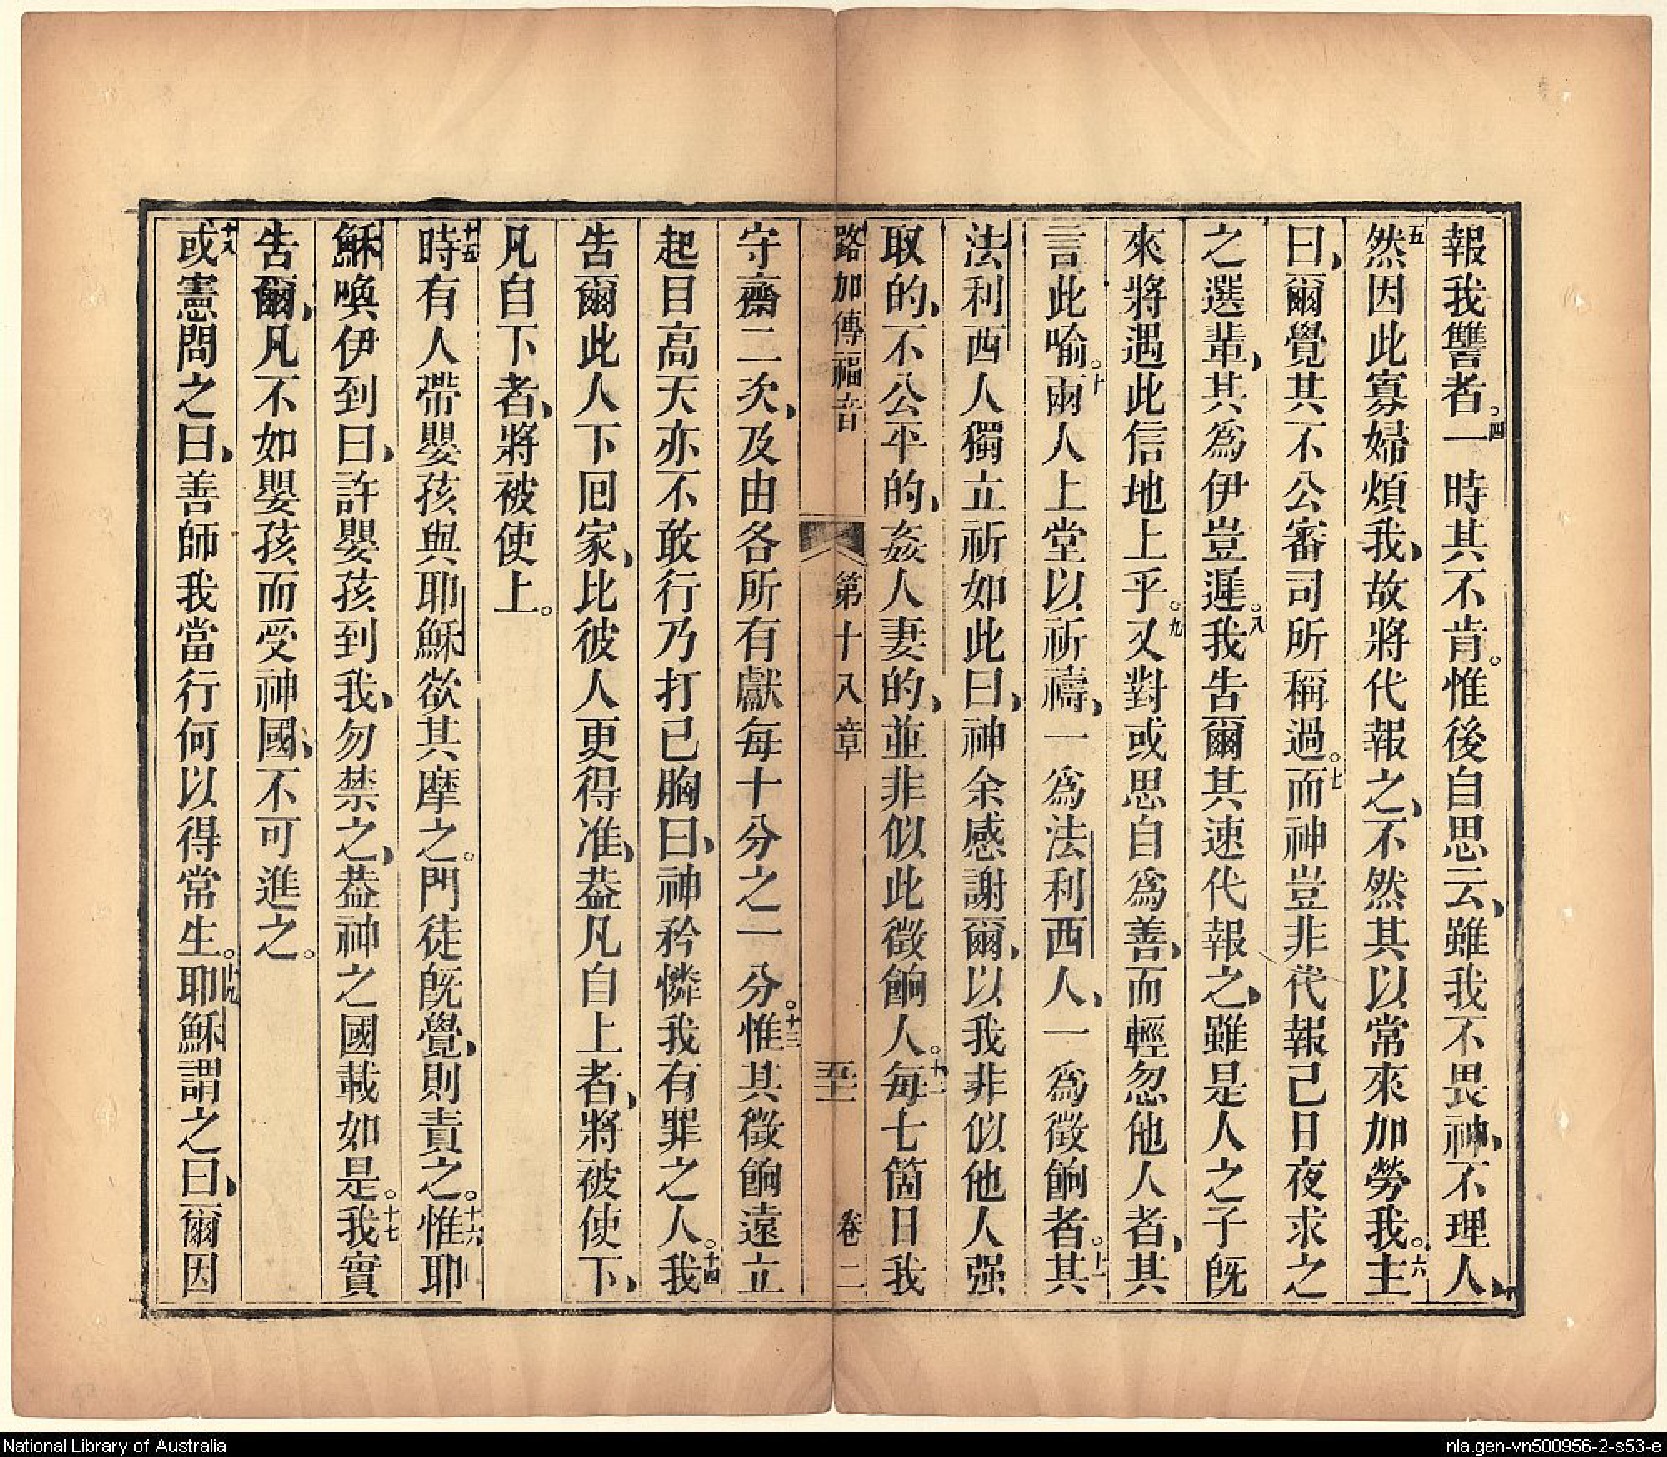 報我讐者。四一時其不肯。惟後自思云、雖我不畏神、不理人、
五然因此寡婦煩我、故將代報之、不然其以常來加勞我。六主
曰、爾覺其不公審司所稱過。七而神豈非代報己日夜求之
之選輩、其為伊豈遲。八我告爾其速代報之、雖是人之子旣
來將遇此信地上乎。九又對或思自為善、而輕忽他人者、其
言此喻。十兩人上堂以祈禱、一為法利西人、一為徵餉者。十一其
法利西人獨立祈如此曰、神余感謝爾、以我非似他人强
取的、不公平的、姦人妻的、並非似此徵餉人。十二每七箇日我
路加傳福音 第十八章 五十一 卷二
守齋二次、及由各所有獻每十分之一分。十三惟其徵餉遠立
起目高天亦不敢行乃打己胸曰、神矜憐我有罪之人。十四我
告爾此人下囘家、比彼人更得准、葢凡自上者、將被使下、
凡自下者、將被使上。
十五時有人帶嬰孩與耶穌欲其摩之。門徒旣覺、則責之。十六惟耶
穌喚伊到曰、許嬰孩到我、勿禁之、葢神之國載如是。十七我實
告爾、凡不如嬰孩而受神國、不可進之。
十八或憲問之曰、善師我當行何以得常生。十九耶穌謂之曰、爾因
National Library of Australia
nla.gen-vn500956-2-s53-e